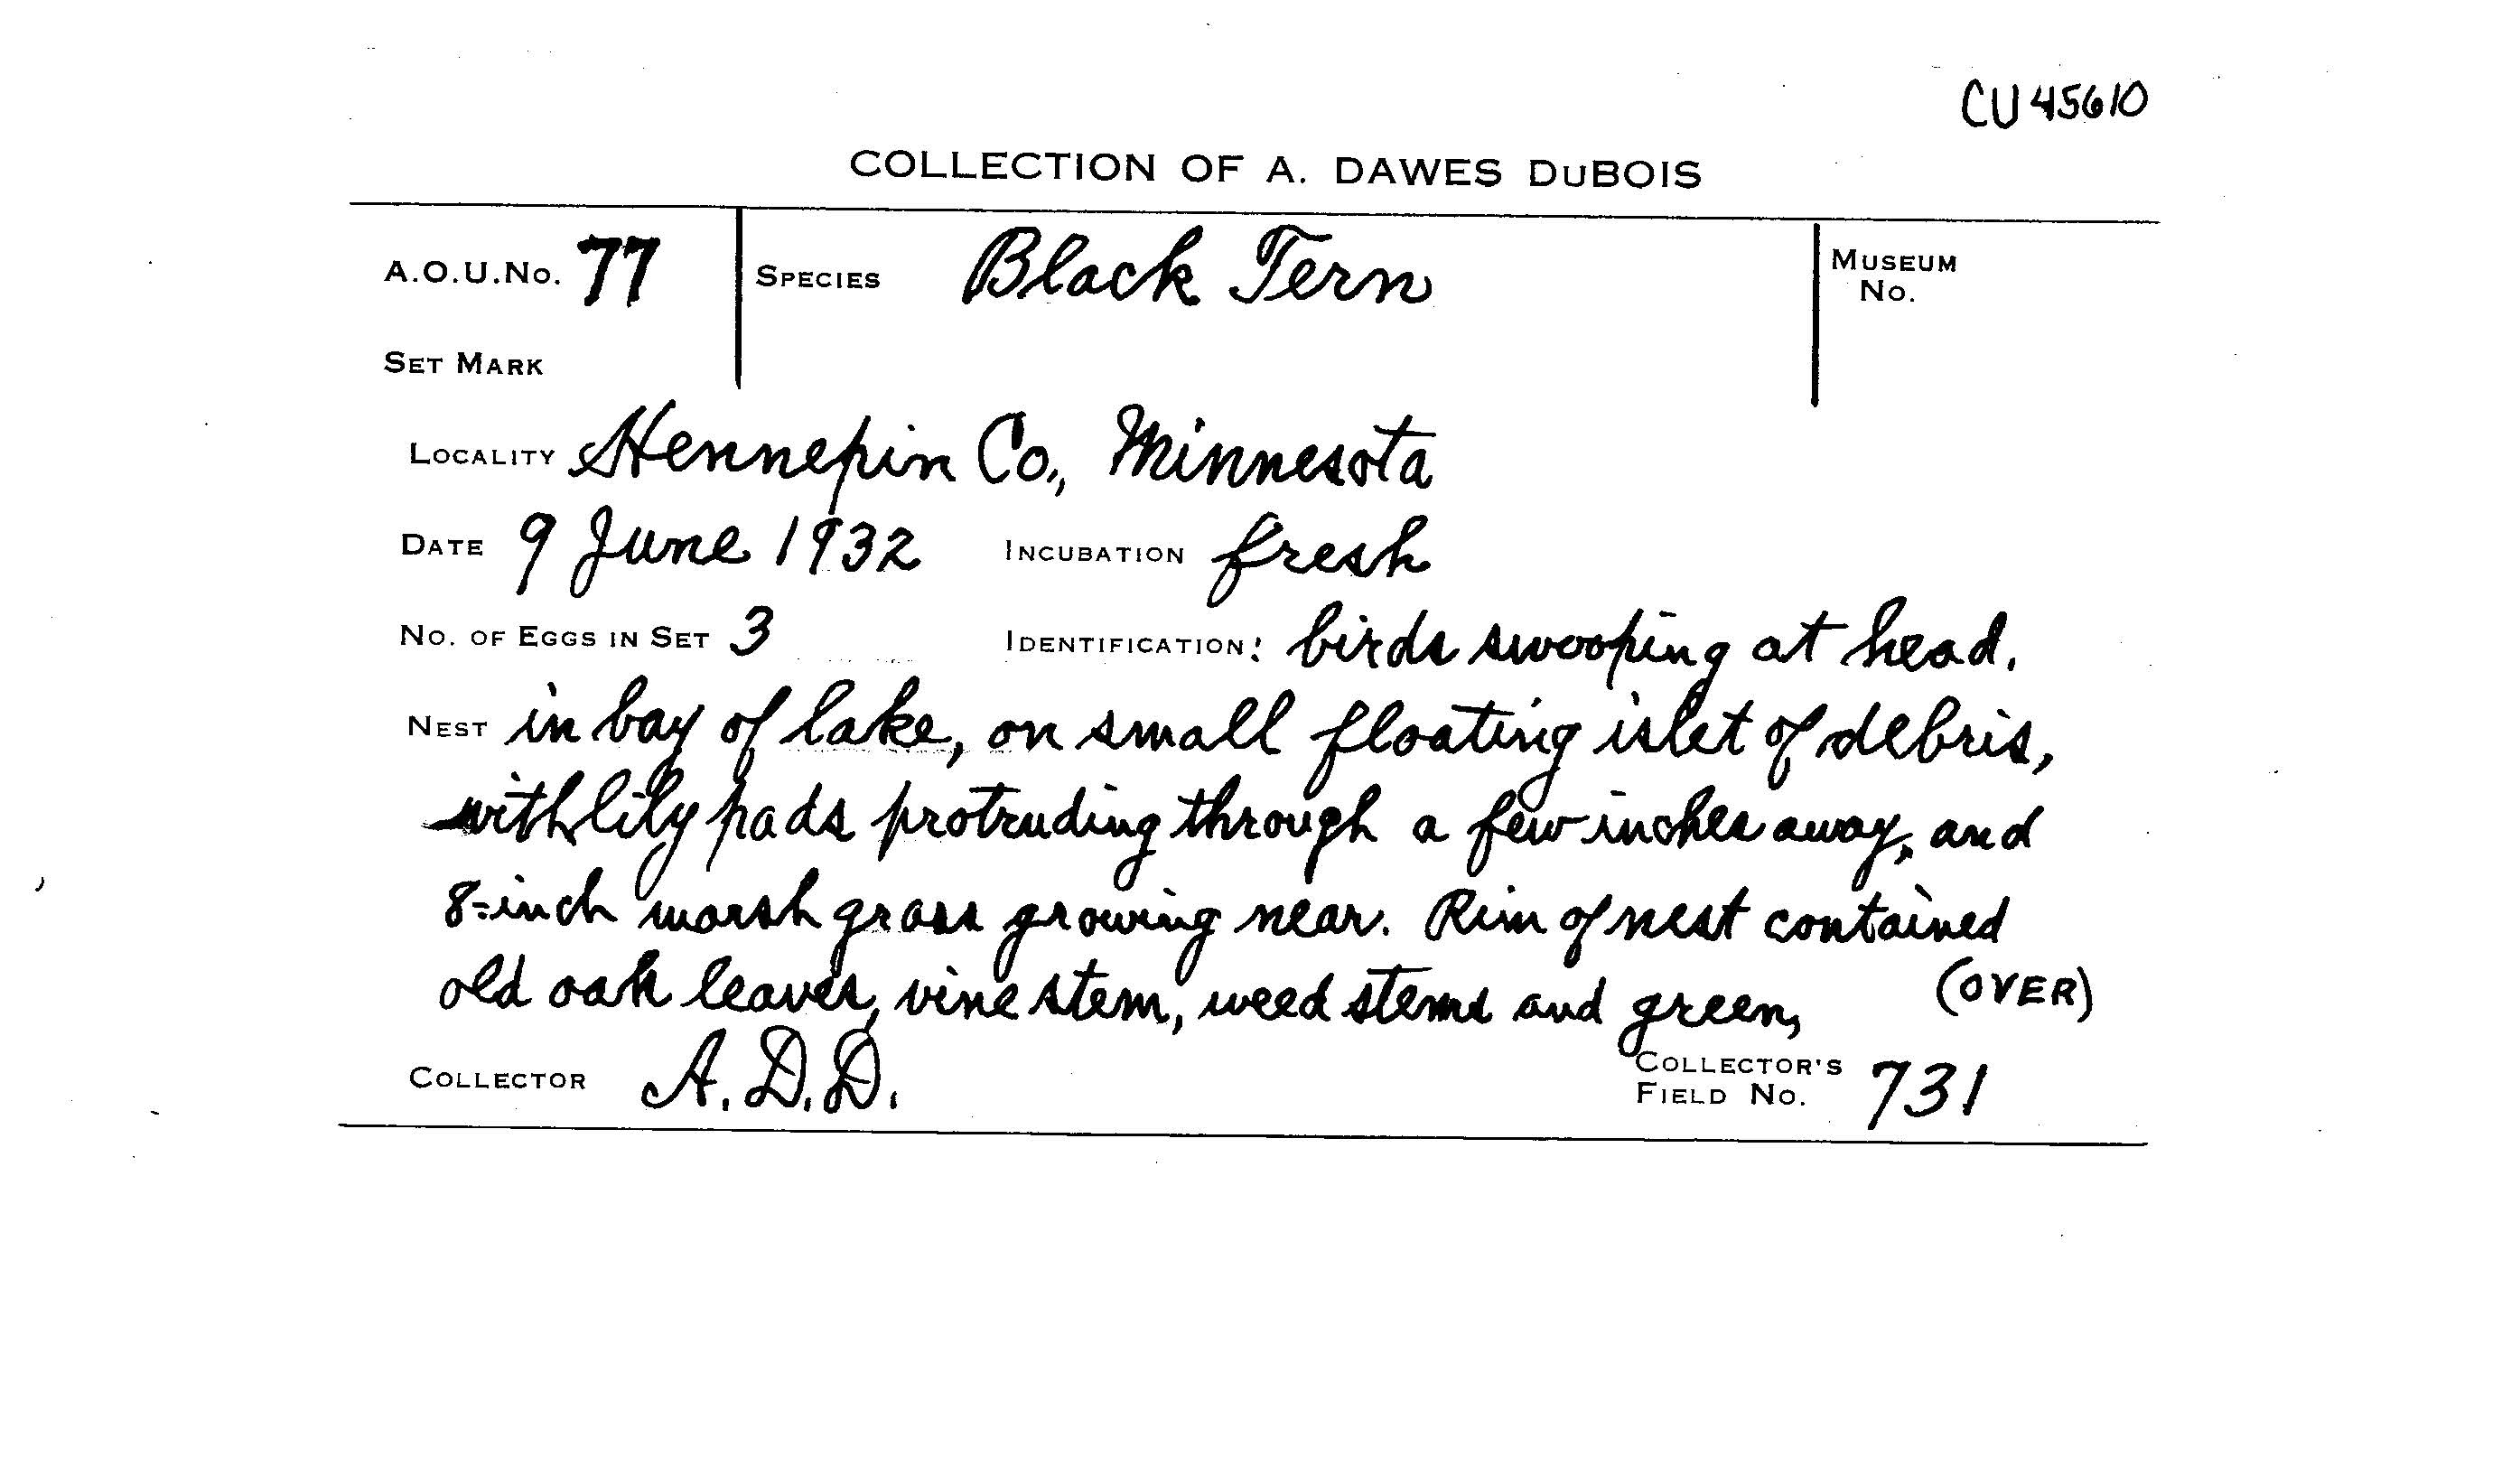 CU 45610
COLLECTION OF A. DAWES DUBOIS
A.O.U.No. 77 SPECIES Black Tern MUSEUM No.
SET MARK
LOCALITY Hennepin Co., Minnesota
DATE 9 June 1932 INCUBATION fresh
NO. OF EGGS IN SET 3 IDENTIFICATION: birds swooping at head.
NEST in bay of lake, on small floating islet of debris,
with lily pads protruding through a few inches away, and
8-inch marsh grass growing near. Rim of nest contained
old oak leaves, vine stem, weed stems and green, (OVER)
COLLECTOR A.D.D. COLLECTOR'S FIELD No. 731